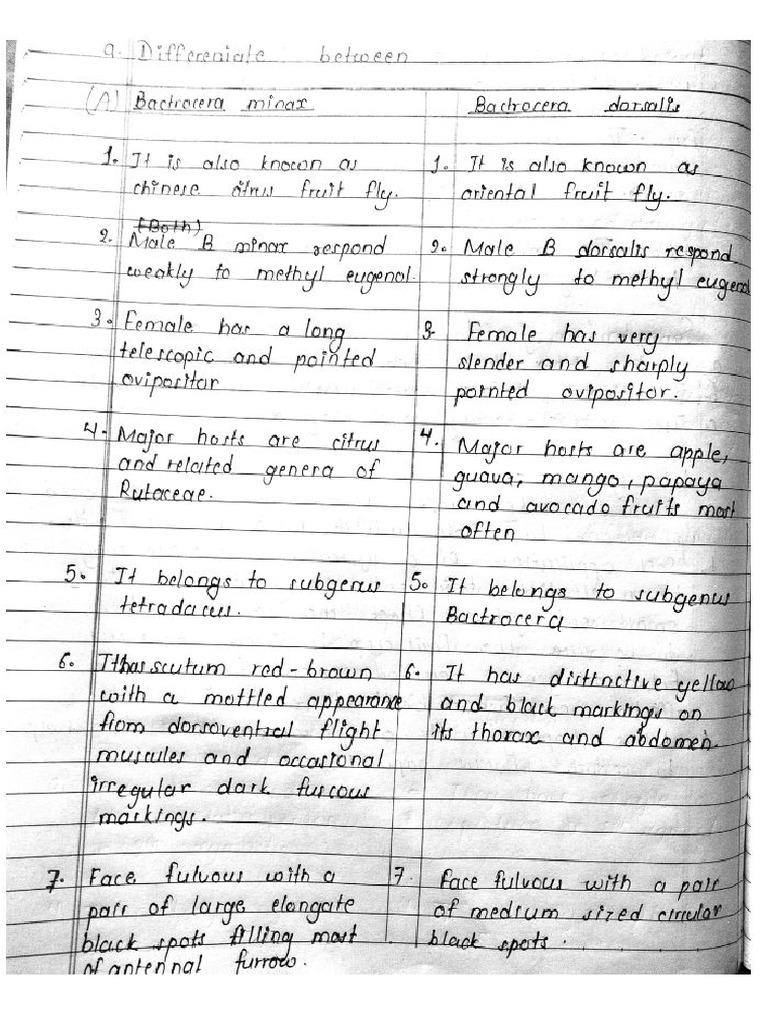 9. Differeniate between
(A) Bactrocera minax
Bactrocera dorsalis
1. It is also known as
chinese citrus fruit fly.
1. It is also known as
oriental fruit fly.
(Both)
2. Male B minax respond
weakly to methyl eugenol.
2. Male B dorsalis respond
strongly to methyl eugenol
3. Female has a long
telescopic and pointed
ovipositor
3. Female has very
slender and sharply
pointed ovipositor.
4. Major hosts are citrus
and related genera of
Rutaceae.
4. Major hosts are apple,
guava, mango, papaya
and avocado fruits most
often
5. It belongs to subgenus
tetradacus.
5. It belongs to subgenus
Bactrocera
6. It has scutum red-brown
with a mottled appearance
from dorsoventral flight
muscles and occasional
irregular dark fuscous
markings.
6. It has distinctive yellow
and black markings on
its thorax and abdomen.
7. Face fulvous with a
pair of large elongate
black spots filling most
of antennal furrow.
7. Face fulvous with a pair
of medium sized circular
black spots.